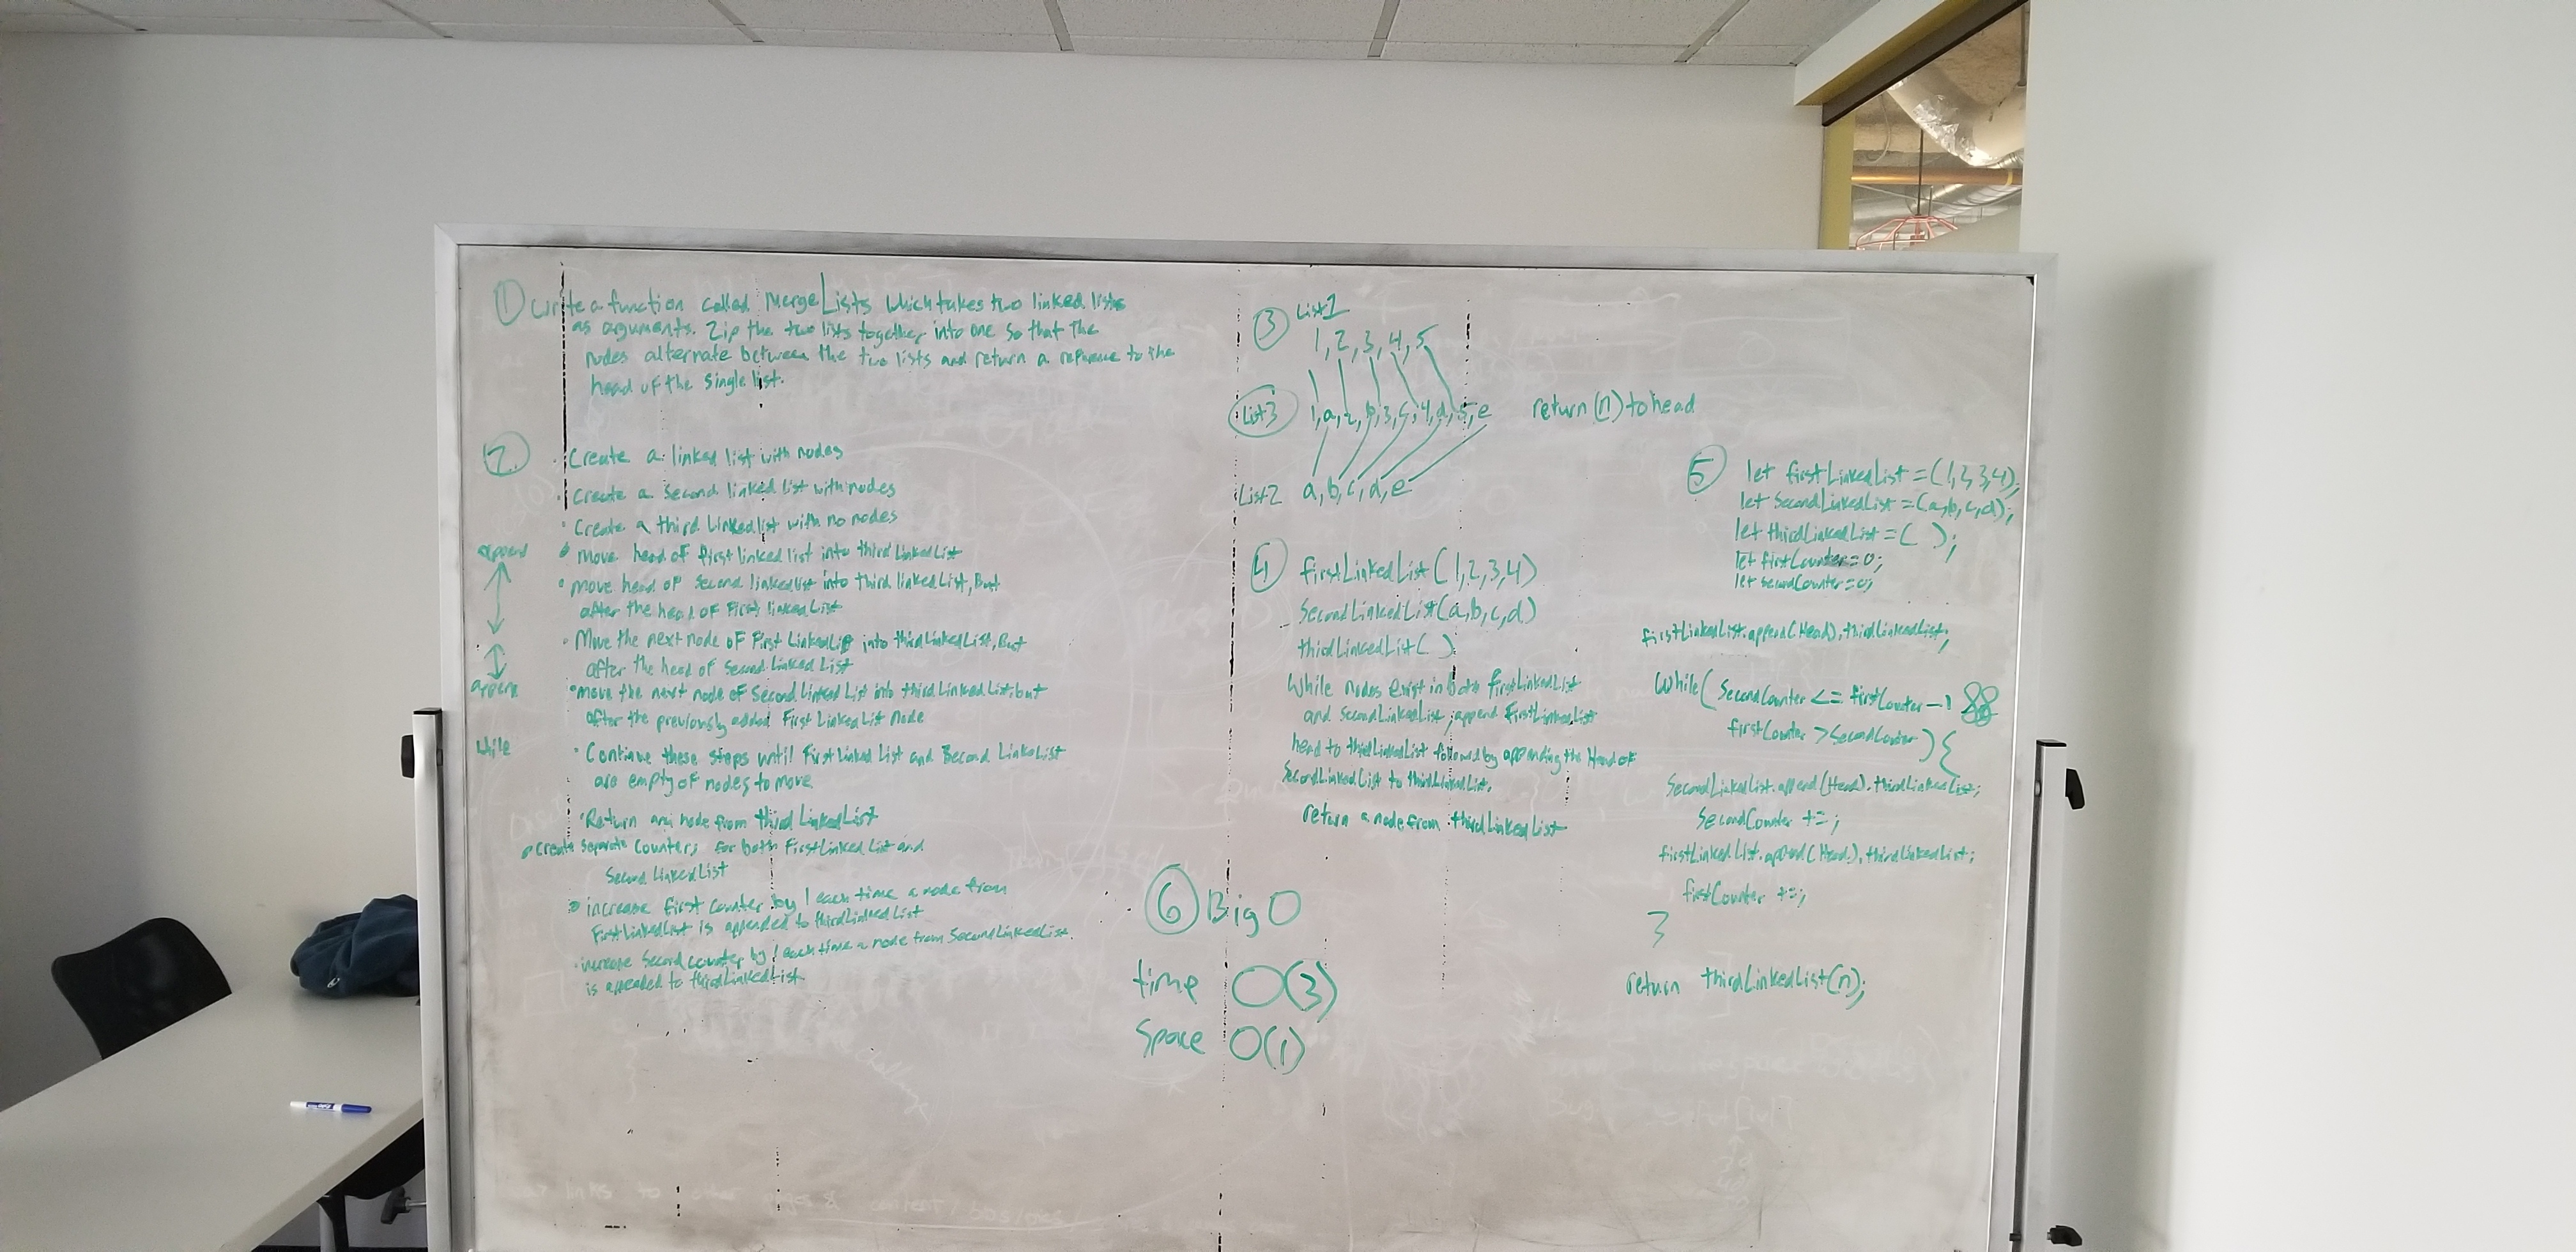 ① Write a function called MergeLists which takes two linked lists
as arguments. Zip the two lists together into one so that the
nodes alternate between the two lists and return a reference to the
head of the single list.
②
· Create a linked list with nodes
· Create a second linked list with nodes
· Create a third linkedlist with no nodes
append
· Move head of first linked list into third LinkedList
· Move head of second linkedlist into third linkedList, But
after the head of First linkedList
· Move the next node of First LinkedList into thirdLinkedList, But
after the head of Second Linked List
append
· move the next node of Second Linked List into thirdLinkedList, but
after the previously added First LinkedList Node
while
· Continue these steps until First Linked List and Second LinkedList
are empty of nodes to move
· Return any node from third LinkedList
· Create separate counters for both FirstLinkedList and
Second LinkedList
· increase first counter by 1 each time a node from
FirstLinkedList is appended to thirdLinkedList
· increase Second counter by 1 each time a node from SecondLinkedList.
is appended to thirdLinkedList.
③ List1
1, 2, 3, 4, 5
List3 1,a,2,b,3,c,4,d,5,e return (n) to head
List2 a,b,c,d,e
④ firstLinkedList (1,2,3,4)
SecondLinkedList(a,b,c,d)
thirdLinkedList( )
While nodes exist in both firstLinkedList
and SecondLinkedList, append FirstLinkedList
head to thirdLinkedList followed by appending the Head of
SecondLinkedList to thirdLinkedList.
return a node from thirdLinkedList
⑤ let firstLinkedList = (1,2,3,4);
let SecondLinkedList = (a,b,c,d);
let thirdLinkedList = ( );
let firstCounter = 0;
let secondCounter = 0;
firstLinkedList.append(Head).thirdLinkedList;
While( SecondCounter <= firstCounter - 1 &&
firstCounter > SecondCounter ) {
SecondLinkedList.append(Head).thirdLinkedList;
SecondCounter +=;
firstLinkedList.append(Head).thirdLinkedList;
firstCounter +=;
}
return thirdLinkedList(n);
⑥ Big O
time O(3)
Space O(1)